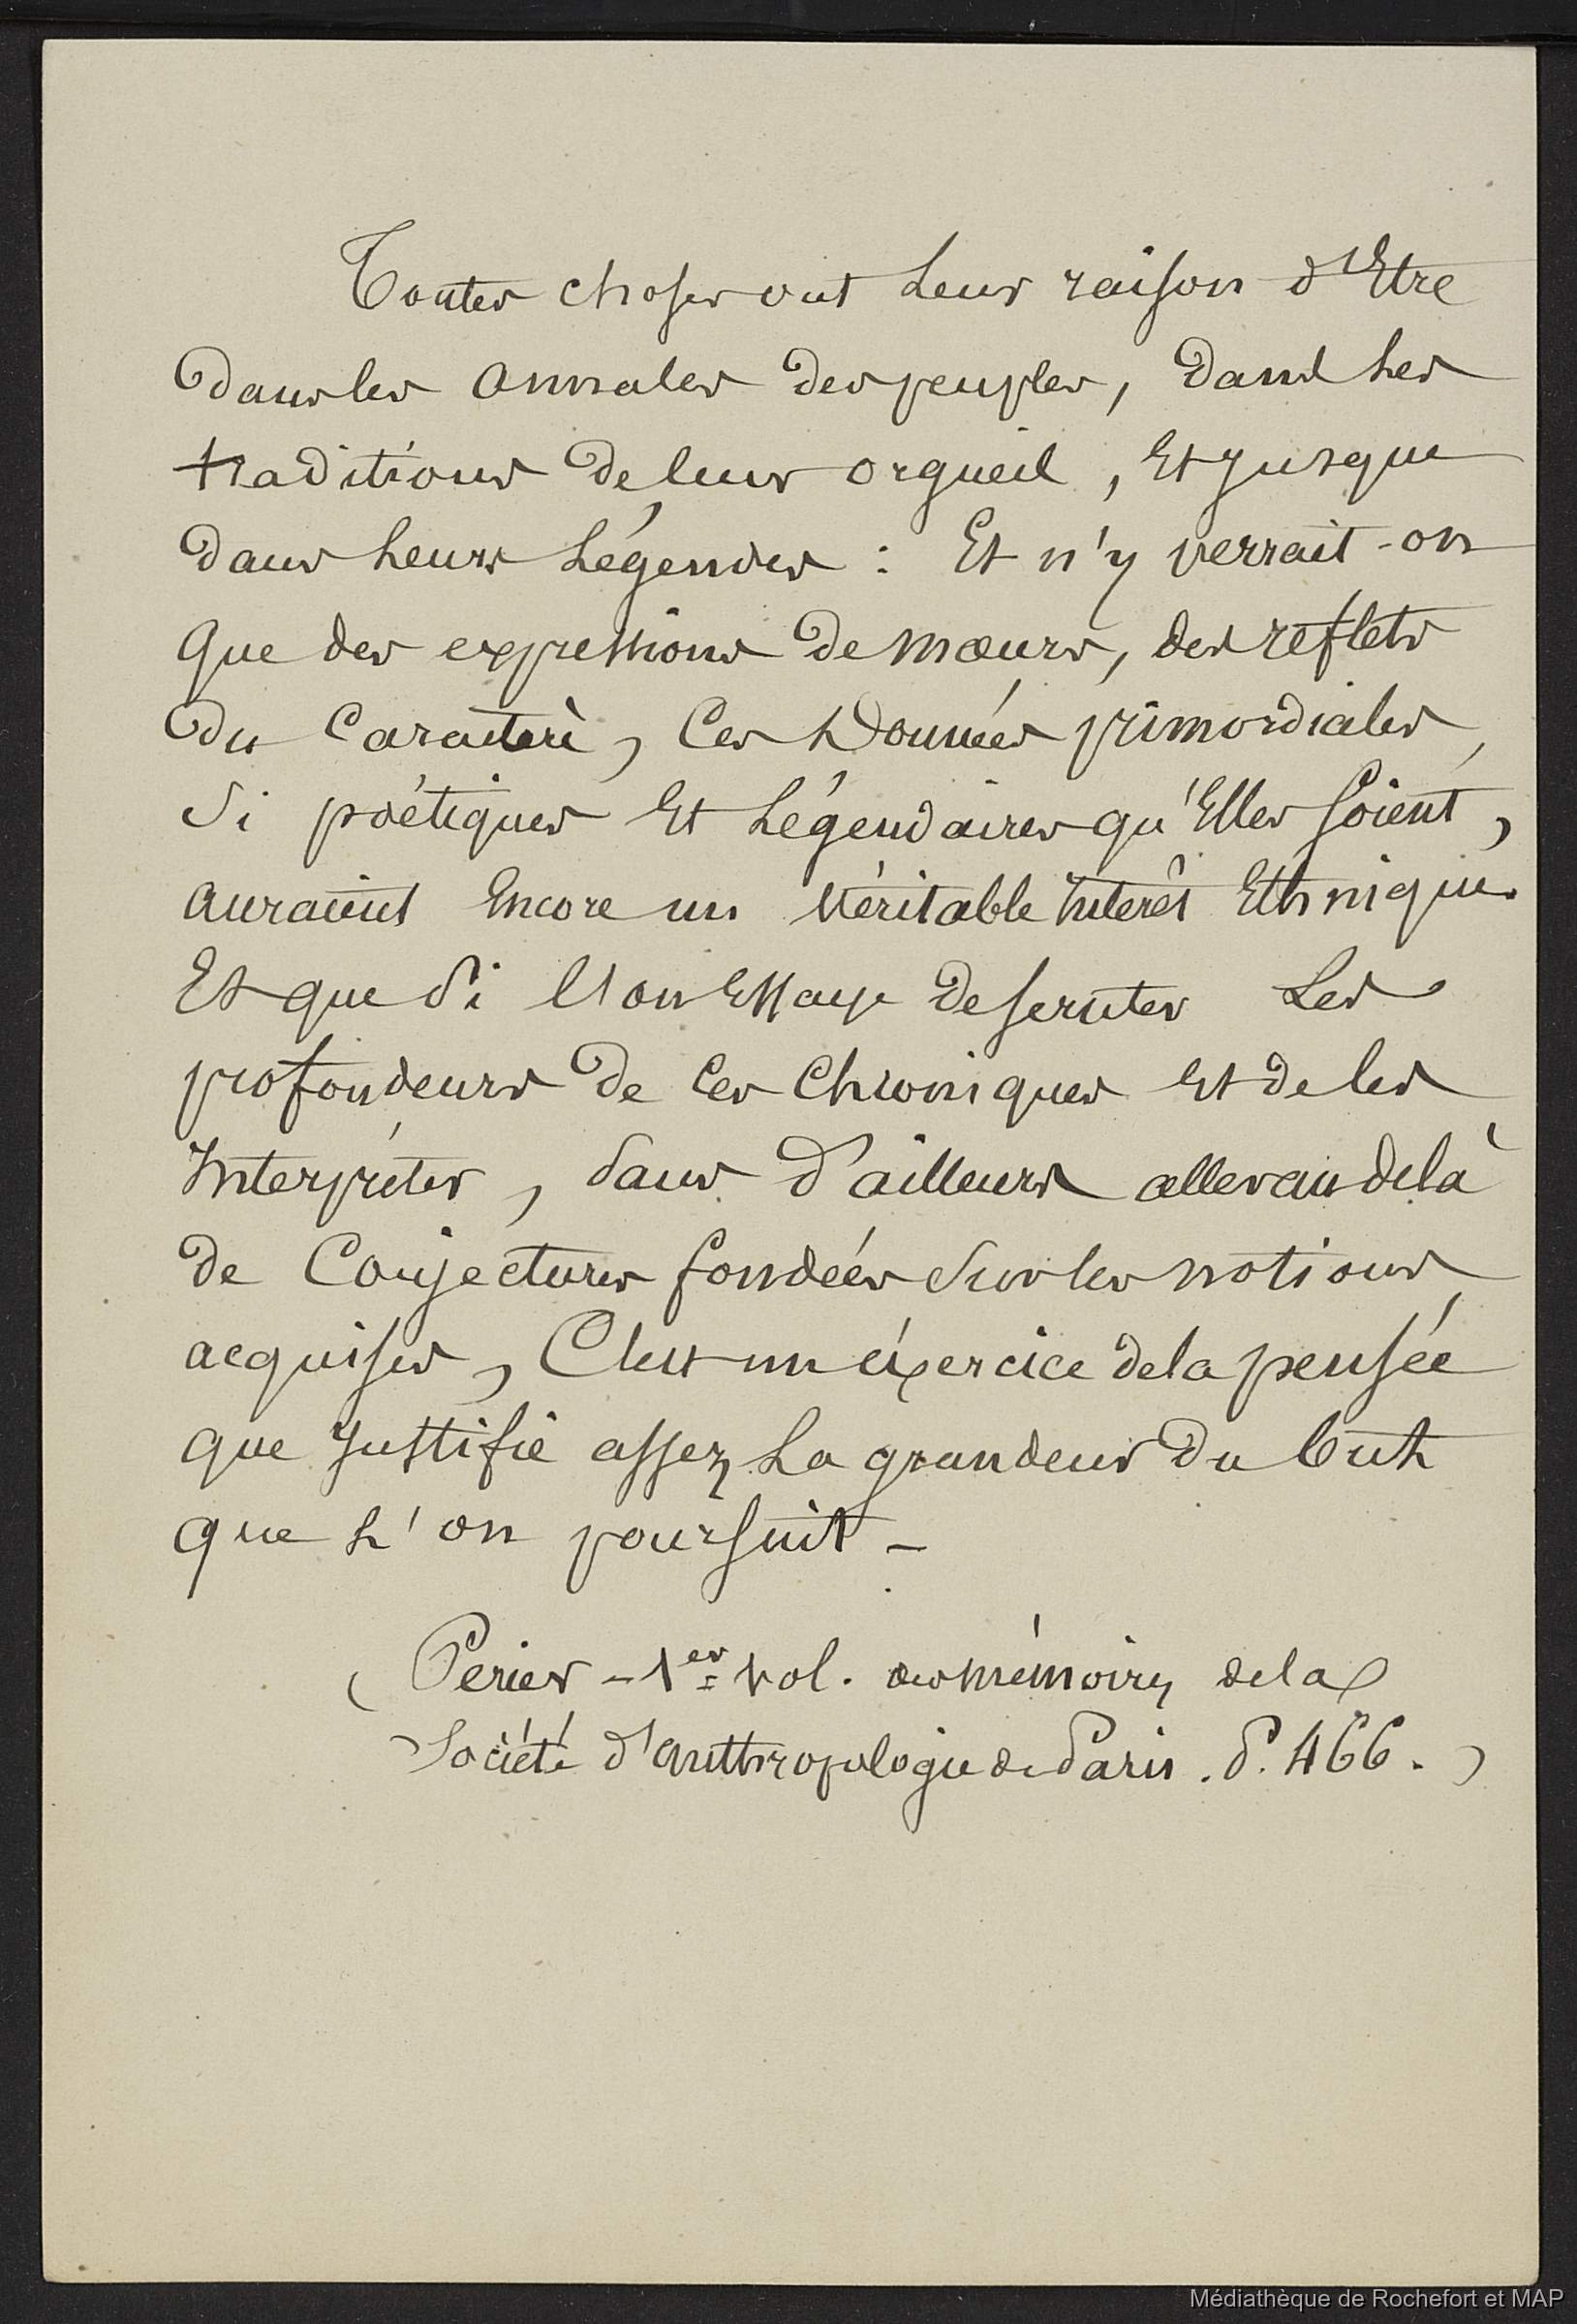 Toutes choses ont leur raison d'Etre
dans les annales des peuples, dans les
traditions de leur orgueil, Et jusque
dans leurs légendes : Et n'y verrait-on
que des expressions de mœurs, des reflets
du Caractère, Ces données primordiales,
Si poétiques Et Légendaires qu'Elles soient,
auraient Encore un Véritable Intérêt Ethnique.
Et que Si l'on Essaye de scruter Les
profondeurs de Ces Chroniques Et de les
Interpréter, Sans d'ailleurs aller au delà
de Conjectures fondées Sur les notions
acquises, C'est un éxercice de la pensée
que justifie assez La grandeur du but
que L'on poursuit –
(Perier – 1er vol. des mémoires de la
Société d'anthropologie de Paris. P. 466.)
Médiathèque de Rochefort et MAP